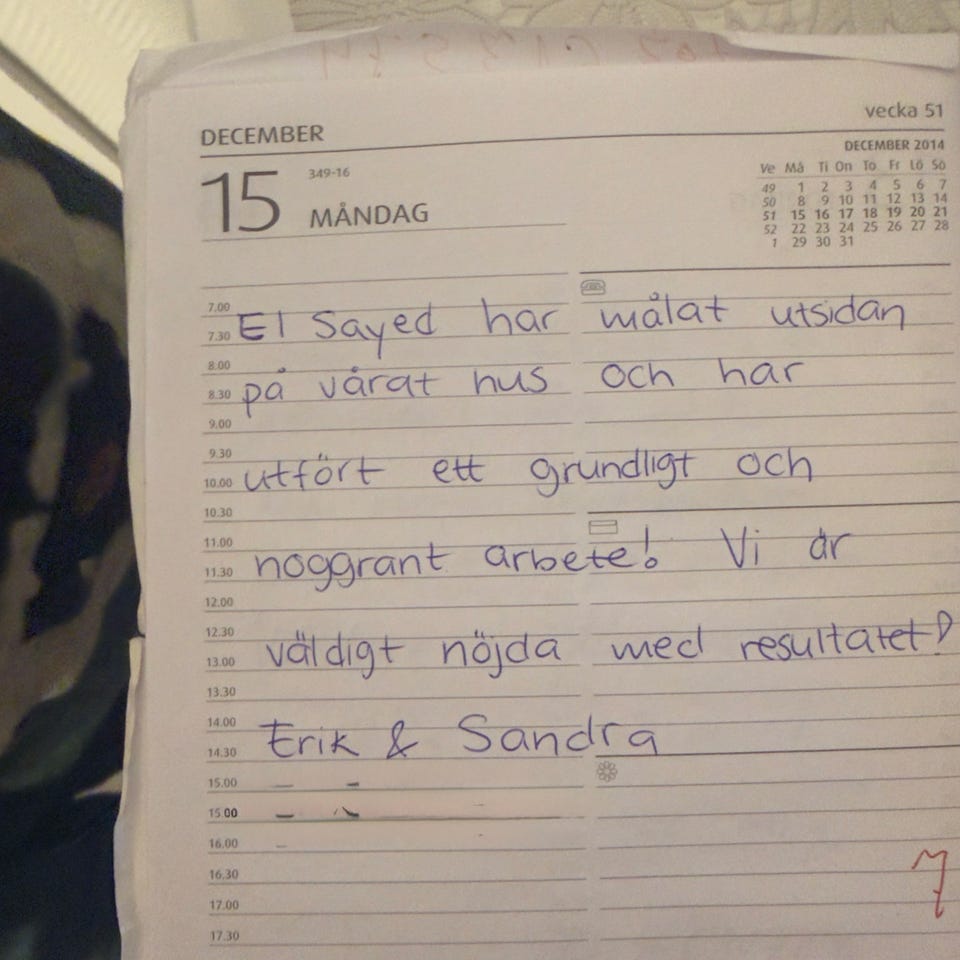 DECEMBER
vecka 51
15
349-16
MÅNDAG
DECEMBER 2014
Ve Må Ti On To Fr Lö Sö
49 1 2 3 4 5 6 7
50 8 9 10 11 12 13 14
51 15 16 17 18 19 20 21
52 22 23 24 25 26 27 28
1 29 30 31
7.00
El Sayed har målat utsidan
7.30
8.00
på vårat hus och har
8.30
9.00
9.30
utfört ett grundligt och
10.00
10.30
11.00
noggrant arbete! Vi är
11.30
12.00
12.30
väldigt nöjda med resultatet!
13.00
13.30
14.00
Erik & Sandra
14.30
15.00
15.00
16.00
16.30
17.00
17.30